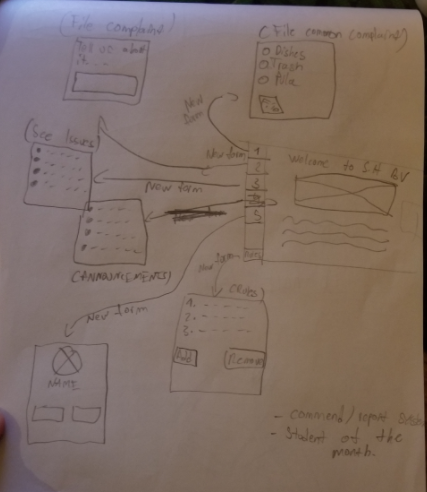 (File complaint)
Tell us about
it...
(File common complaint)
Dishes
Trash
File
New
form
(See Issues)
New form
1
2
3
4
5
Welcome to S.H
New form
(ANNOUNCEMENTS)
New form
New form
(Rules)
1.
2.
3.
Add
Remove
NAME
- commend / report
- Student of the
month.